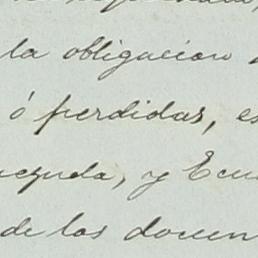 la obligacion
ó perdidas, es
nezuela, y Ecu
de los docum